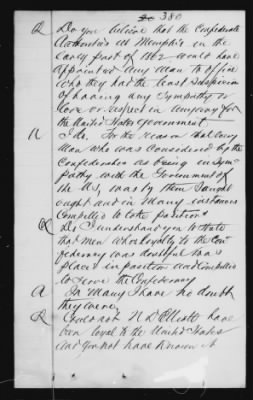 380
Q Do you believe that the Confederate
Authorities at Memphis in the
early part of 1862 would have
appointed any man to office
who they had the least suspicion
of having any sympathy or
love or respect in any way for
the United States government
A I do. For the reason that every
man who was considered by the
Confederates as being in sym-
pathy with the Government of
the US, was by them Sought
ought and in many instances
Compelled to take positions
Q Do I understand you to state
that men whose loyalty to the Con-
federacy was doubtful was
placed in position and compelled
to serve the Confederacy
A In many I have no doubt
they were.
Q Could not N D Elliott have
been loyal to the United States
and you not have known it